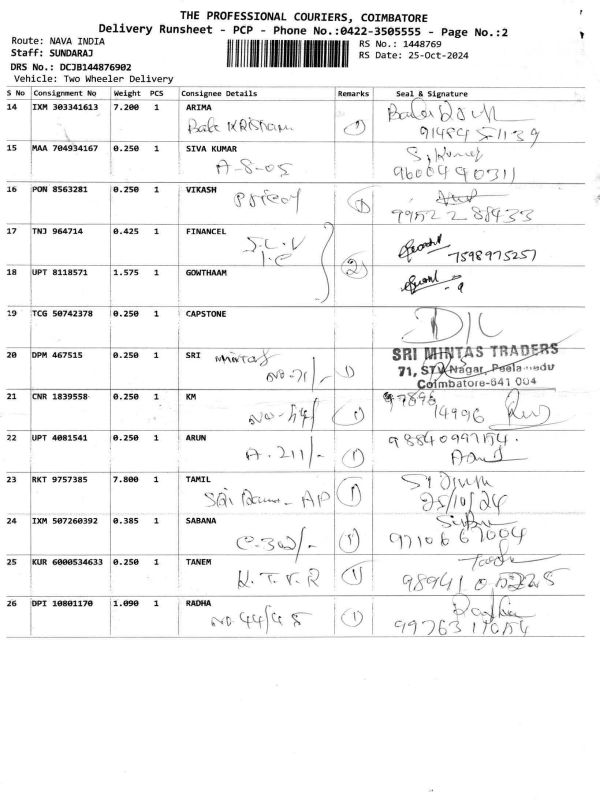 THE PROFESSIONAL COURIERS, COIMBATORE
Delivery Runsheet - PCP - Phone No.:0422-3505555 - Page No.:2
Route: NAVA INDIA
RS No.: 1448769
Staff: SUNDARAJ
RS Date: 25-Oct-2024
DRS No.: DCJB144876902
Vehicle: Two Wheeler Delivery
S No Consignment No Weight PCS Consignee Details Remarks Seal & Signature
14 IXM 303341613 7.200 1 ARIMA
1
15 MAA 704934167 0.250 1 SIVA KUMAR
A-8-05
9600440311
16 PON 8563281 0.250 1 VIKASH
1
99522 88433
17 TNJ 964714 0.425 1 FINANCEL
7598975257
2
18 UPT 8118571 1.575 1 GOWTHAAM
19 TCG 50742378 0.250 1 CAPSTONE
SRI MINTAS TRADERS
20 DPM 467515 0.250 1 SRI MINTAS
No-71/- 1
71, STV Nagar, Peelamedu
Coimbatore-641 004
21 CNR 1839558 0.250 1 KM
1
97896
14996
22 UPT 4081541 0.250 1 ARUN
A-211/- 1
23 RKT 9757385 7.800 1 TAMIL
1
25/10/24
24 IXM 507260392 0.385 1 SABANA
C-302/- 1
97106 67004
25 KUR 6000534633 0.250 1 TANEM
K.T.V.R 1
26 DPI 10801170 1.090 1 RADHA
No 44/45 1